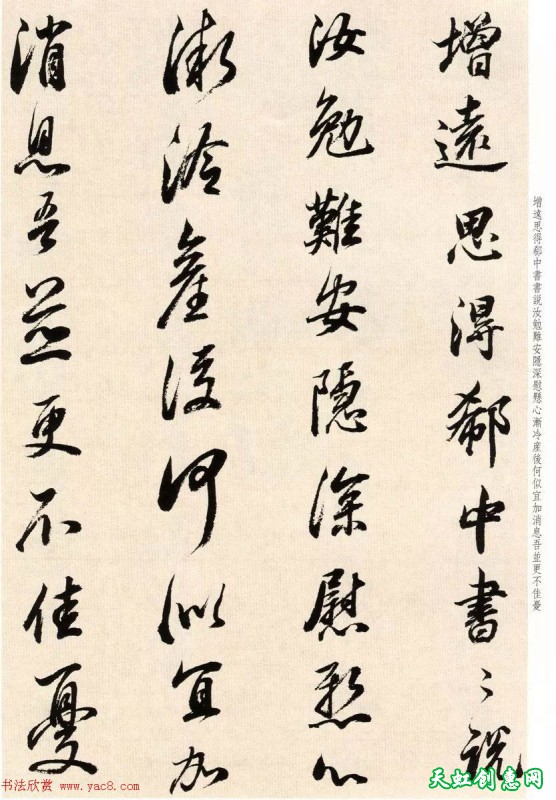 增遠思得郗中書〻說
汝勉難安隱深慰懸心
漸冷產後何似宜加
消息吾並更不佳憂
增遠思得郗中書書說汝勉難安隱深慰懸心漸冷産後何似宜加消息吾並更不佳憂
书法欣赏 www.yac8.com
天虹创意网